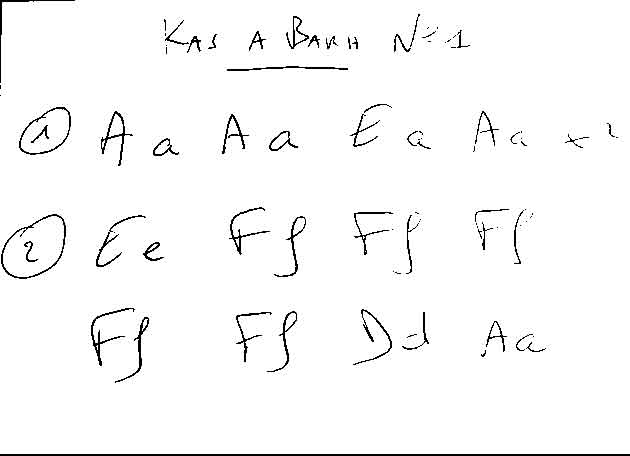 KAS A BARH N° 1
① A a A a E a A a x 2
② E e F f F f F f
F f F f D d A a